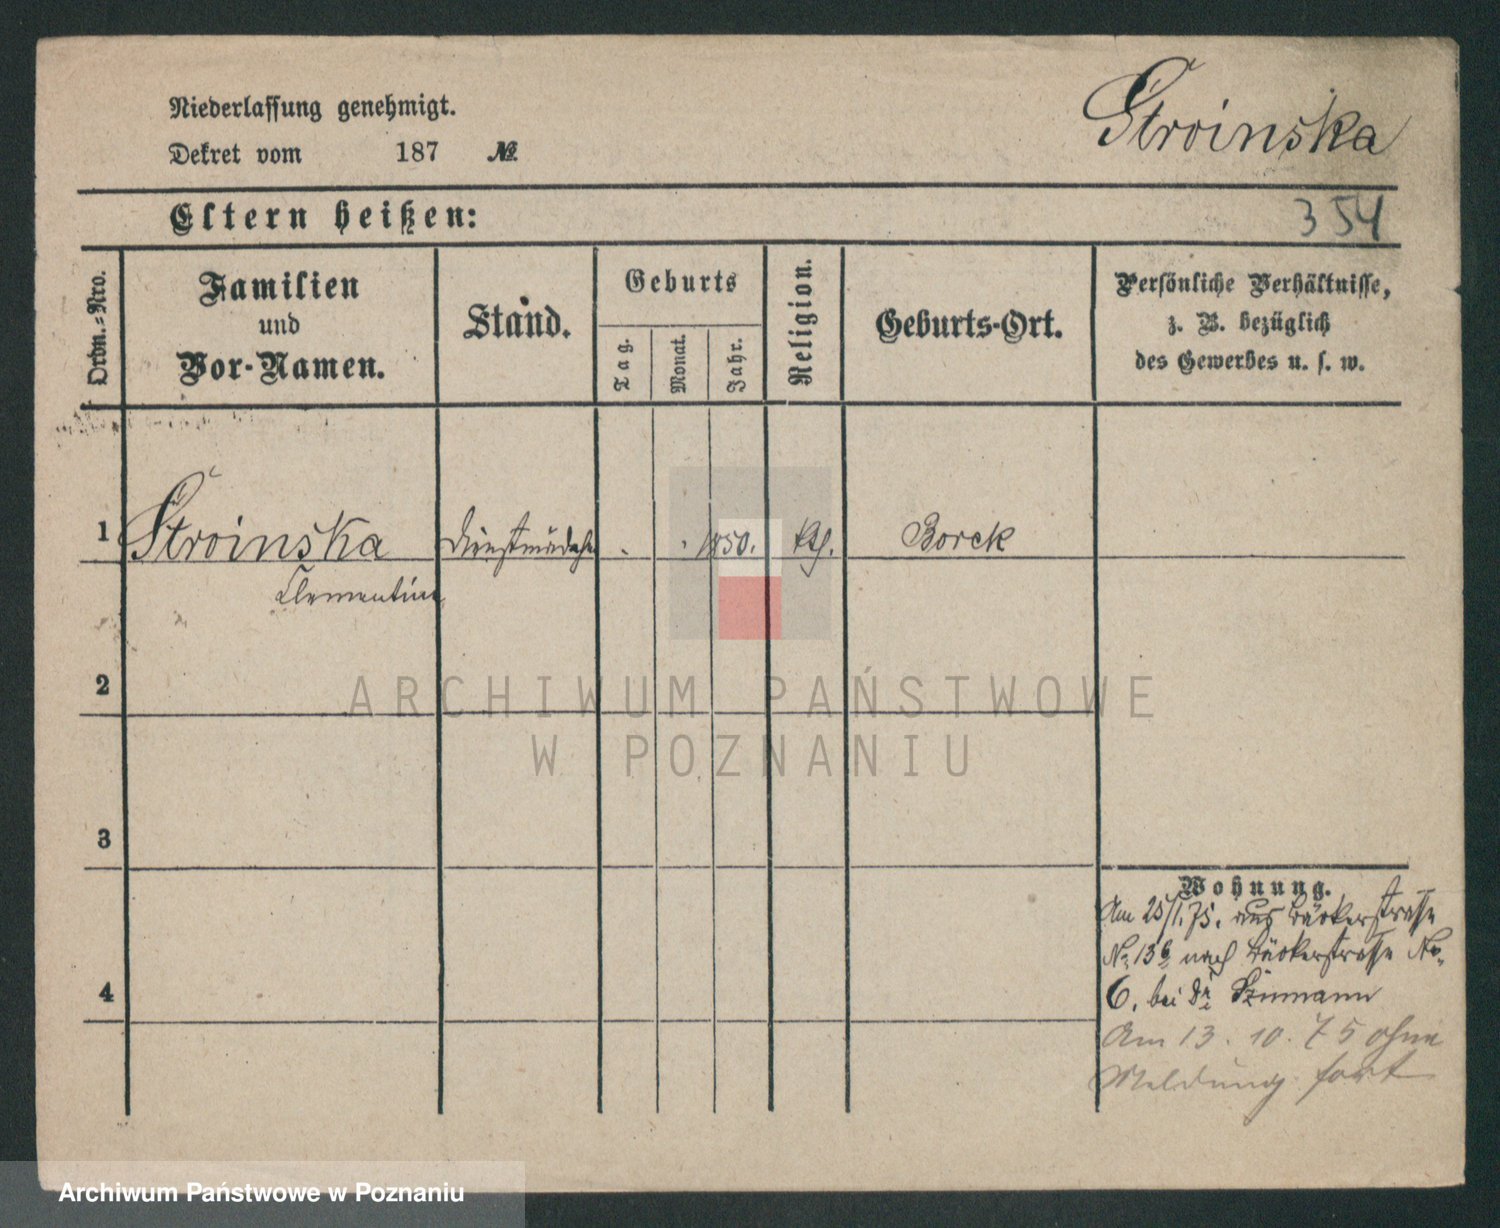 Stroinska
Niederlassung genehmigt.
Dekret vom 187 №
Eltern heißen:
354
Ordn.-Nro.
Familien
und
Vor-Namen.
Stand.
Geburts
Tag.
Monat.
Jahr.
Religion.
Geburts-Ort.
Persönliche Verhältnisse,
z. B. bezüglich
des Gewerbes u. s. w.
1 Stroinska Dienstmädch 1850. kth. Borek
Clementine
2
3
4
Wohnung.
Am 25/1.75. aus Bäckerstrasse
No 13b nach Bäckerstrasse No.
6. bei Dr
Am 13. 10. 75 ohne
Meldung fort
ARCHIWUM PAŃSTWOWE
W POZNANIU
Archiwum Państwowe w Poznaniu